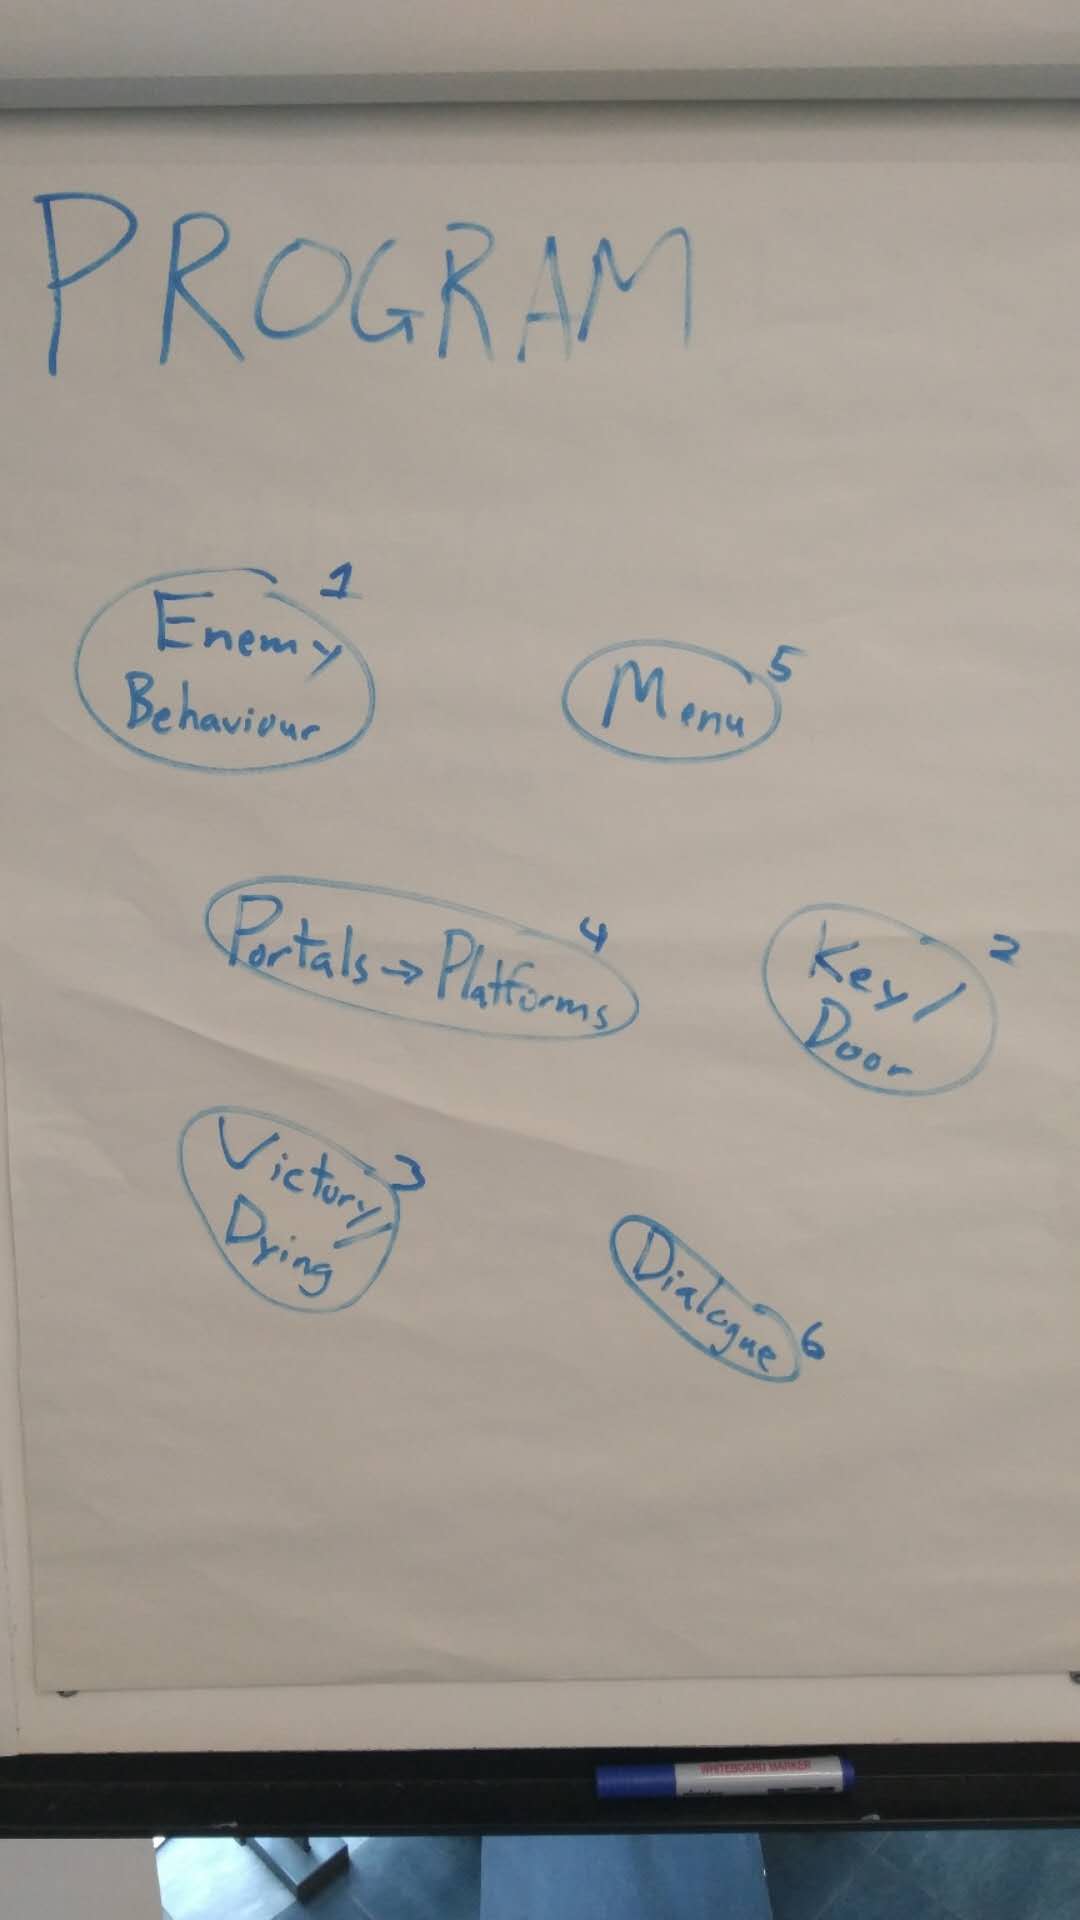 PROGRAM
1
Enemy
Behaviour
5
Menu
4
Portals → Platforms
2
Key/
Door
3
Victory/
Dying
Dialogue
6
WHITEBOARD MARKER